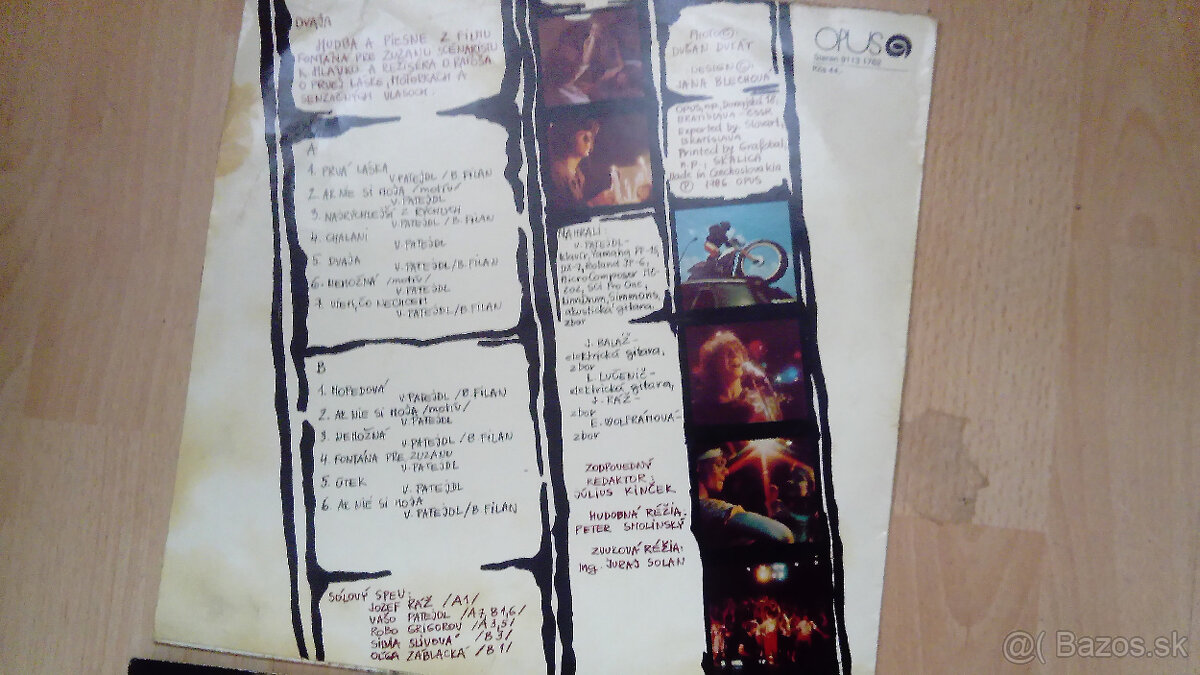 DVAJA
HUDBA A PIESNE Z FILMU
FONTÁNA PRE ZUZANU SCENÁRISTU
K. HLAVKU A REŽISÉRA D. RAPOŠA
O PRVEJ LÁSKE, MOTORKÁCH A
SENZAČNÝCH VLASOCH.
A
1. PRVÁ LÁSKA
V. PATEJDL / B. FILAN
2. AK NIE SI MOJA /motív/
V. PATEJDL
3. NAJRÝCHLEJŠÍ Z RÝCHLYCH
V. PATEJDL / B. FILAN
4. CHALANI
V. PATEJDL
5. DVAJA
V. PATEJDL / B. FILAN
6. NEMOŽNÁ /motív/
V. PATEJDL
7. VIEM, ČO NECHCEM
V. PATEJDL / B. FILAN
B
1. MOPEDOVÁ
V. PATEJDL / B. FILAN
2. AK NIE SI MOJA /motív/
V. PATEJDL
3. NEMOŽNÁ
V. PATEJDL / B. FILAN
4. FONTÁNA PRE ZUZANU
V. PATEJDL
5. ÚTEK
V. PATEJDL
6. AK NIE SI MOJA
V. PATEJDL / B. FILAN
SÓLOVÝ SPEV:
JOZEF RÁŽ /A1/
VAŠO PATEJDL /A7, B1,6/
ROBO GRIGOROV /A3,5/
SILVIA SLIVOVÁ /B3/
OĽGA ZÁBLACKÁ /B1/
NAHRALI:
V. PATEJDL -
klavír, Yamaha PF-15,
DX-7, Roland JP-6,
MicroComposer MC-
202, SCI Pro One,
Linndrum, Simmons,
akustická gitara,
zbor
J. BALÁŽ -
elektrická gitara,
zbor
L. LUČENIČ -
elektrická gitara,
J. RÁŽ -
zbor
E. WOLFRÁMOVÁ -
zbor
ZODPOVEDNÝ
REDAKTOR:
JÚLIUS KINČEK
HUDOBNÁ RÉŽIA:
PETER SMOLINSKÝ
ZVUKOVÁ RÉŽIA:
Ing. JURAJ SOLAN
PHOTO ©:
DUŠAN DUKÁT
DESIGN ©:
JANA BLECHOVÁ
OPUS, n.p., Dunajská 18,
BRATISLAVA - ČSSR
Exported by Slovart,
BRATISLAVA
Printed by Grafobal,
n.p., SKALICA
Made in Czechoslovakia
℗ 1986 OPUS
OPUS
Stereo 9113 1762
Kčs 44,-
@( Bazos.sk